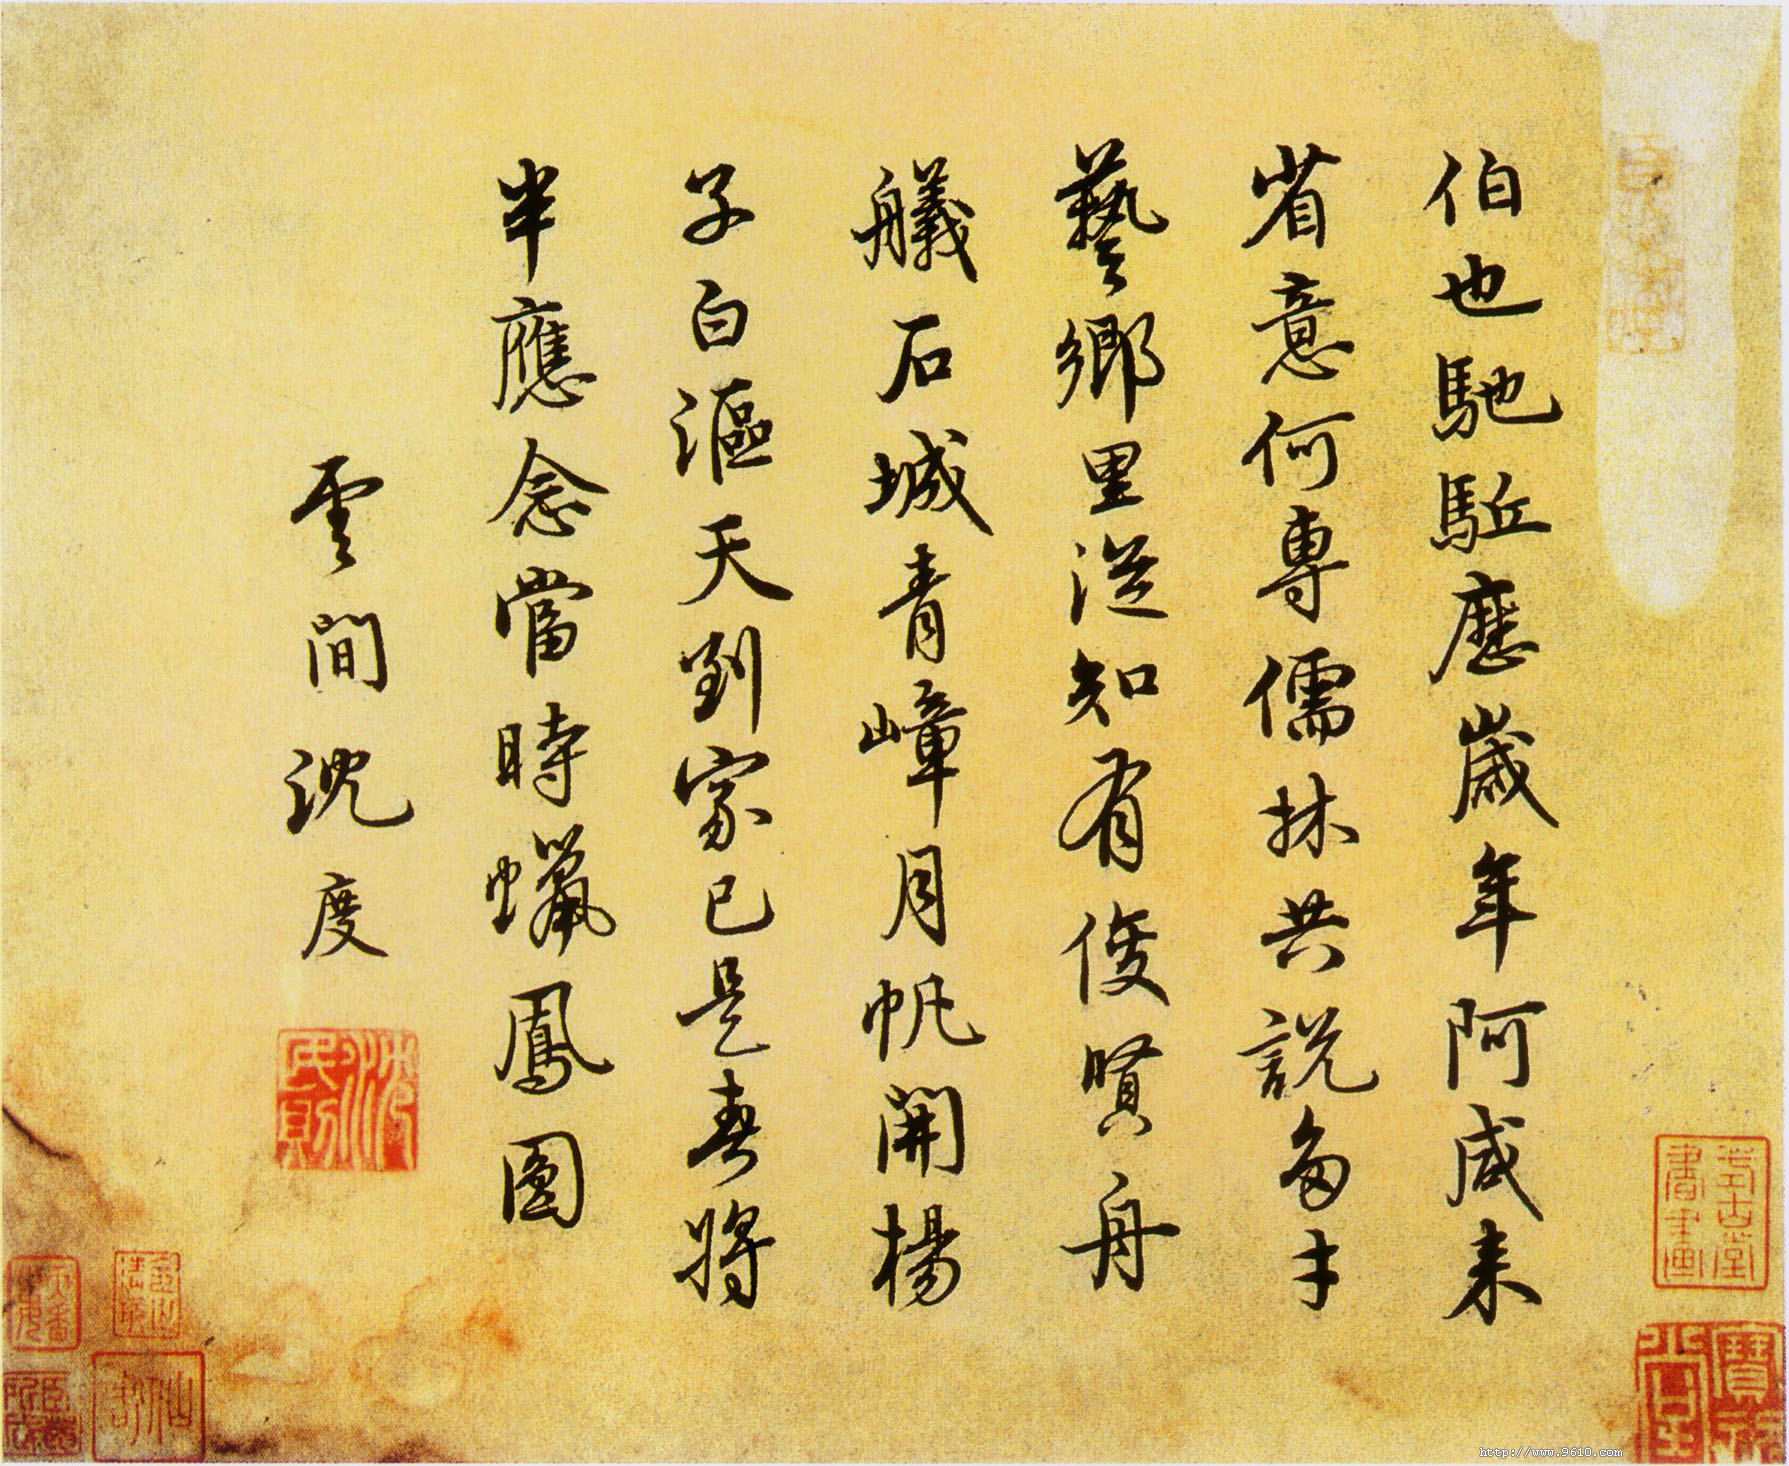 伯也馳駈歷歲年阿咸来
省意何專儒林共說多才
藝鄉里從知有俊賢舟
艤石城青嶂月帆開楊
子白漚天到家已是春將
半應念當時蠟鳳圓
雲間沈度
沈民則
http://www.9610.com